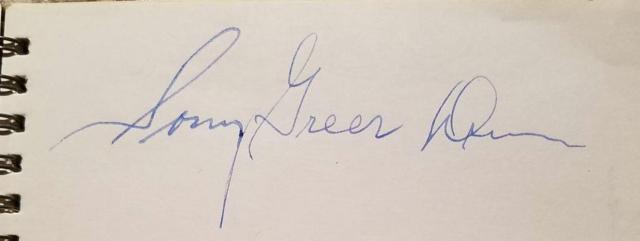 Sonny Greer Drums